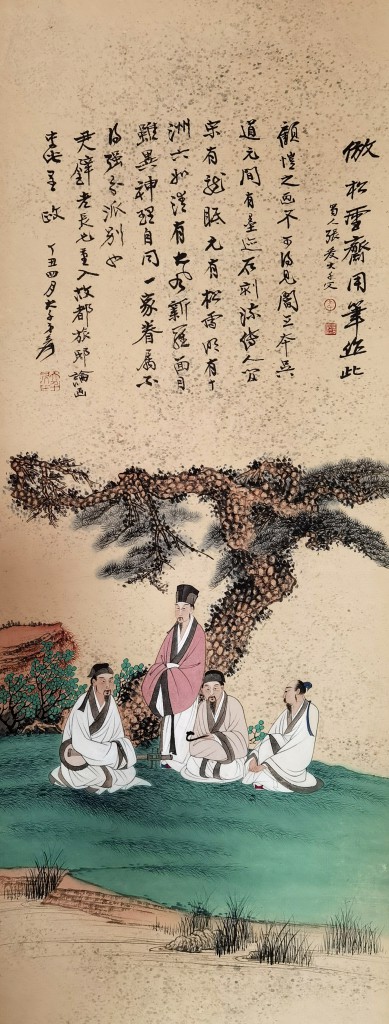 倣松雪齋用筆作此
蜀人張爰大千父
顧愷之画不可得見閻立本吳
道元間有墨迹石刻流傳人
宋有龍眠元有松雪明有十
洲六如清有大風新羅面目
雖異神理自同一家眷屬不
得強分派別也
尹老長也重入故都旅邸論画
呈政 丁丑四月大千爰